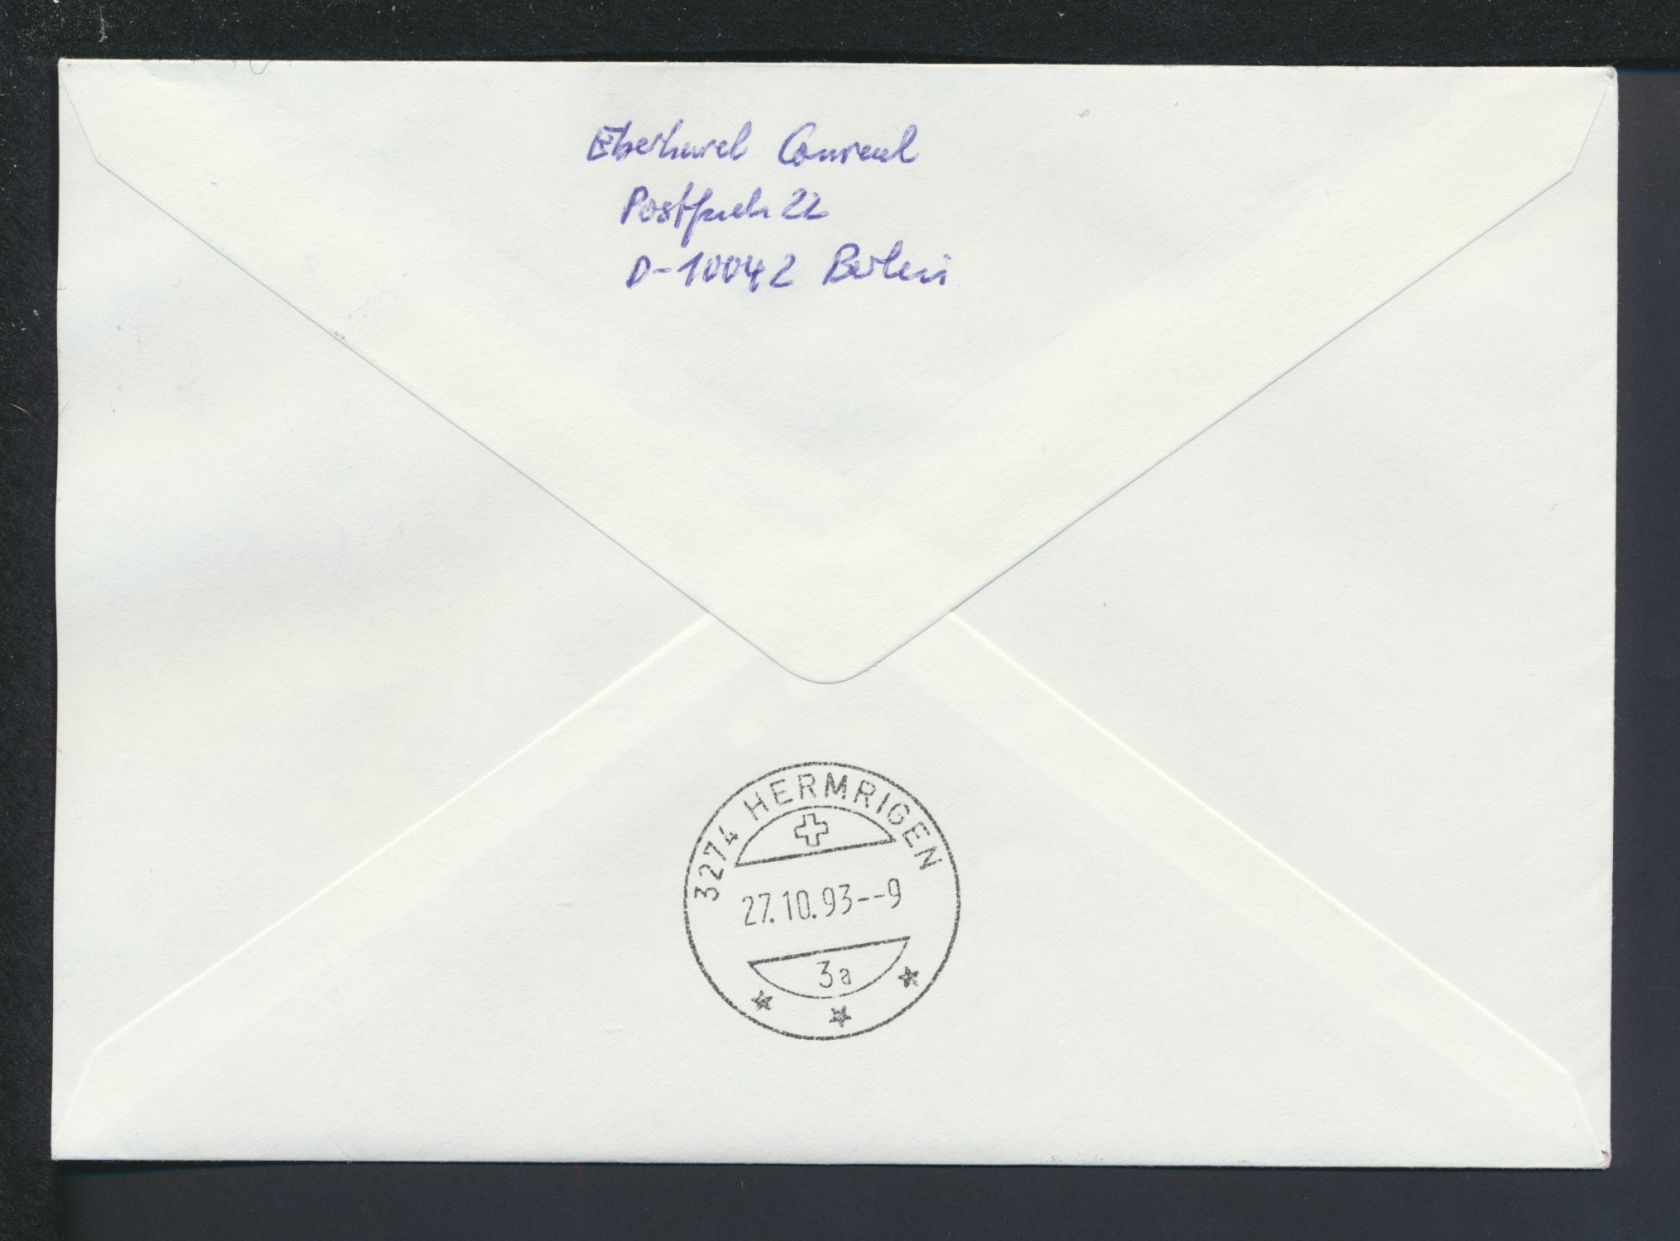 Eberhard Conrad
Postfach 22
D-10042 Berlin
3274 HERMRIGEN
27.10.93--9
3a